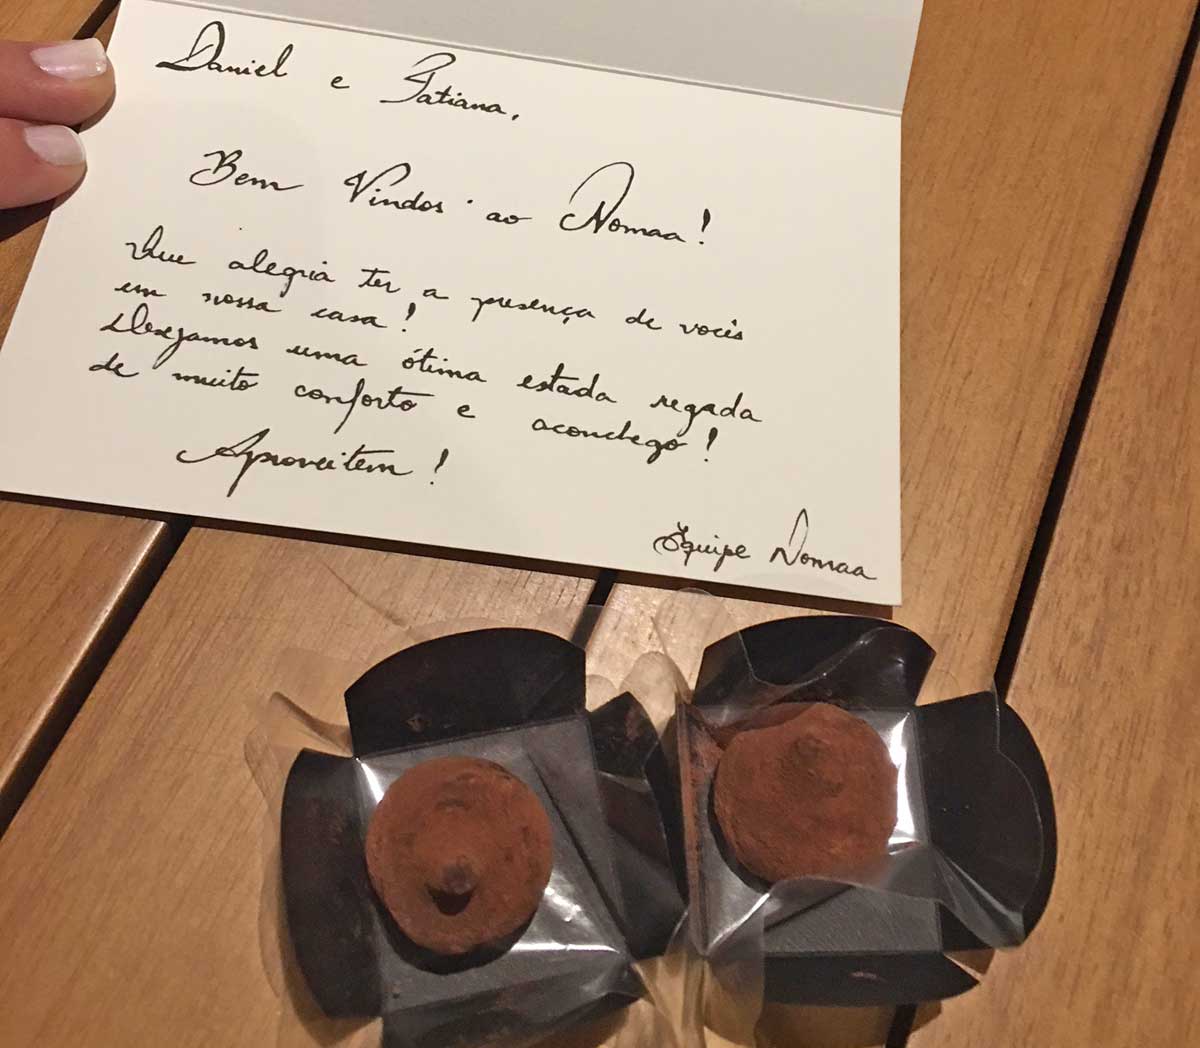 Daniel e Tatiana,
Bem Vindos ao Nomaa!
Que alegria ter a presença de vocês
em nossa casa!
Desejamos uma ótima estada regada
de muito conforto e aconchego!
Aproveitem!
Equipe Nomaa